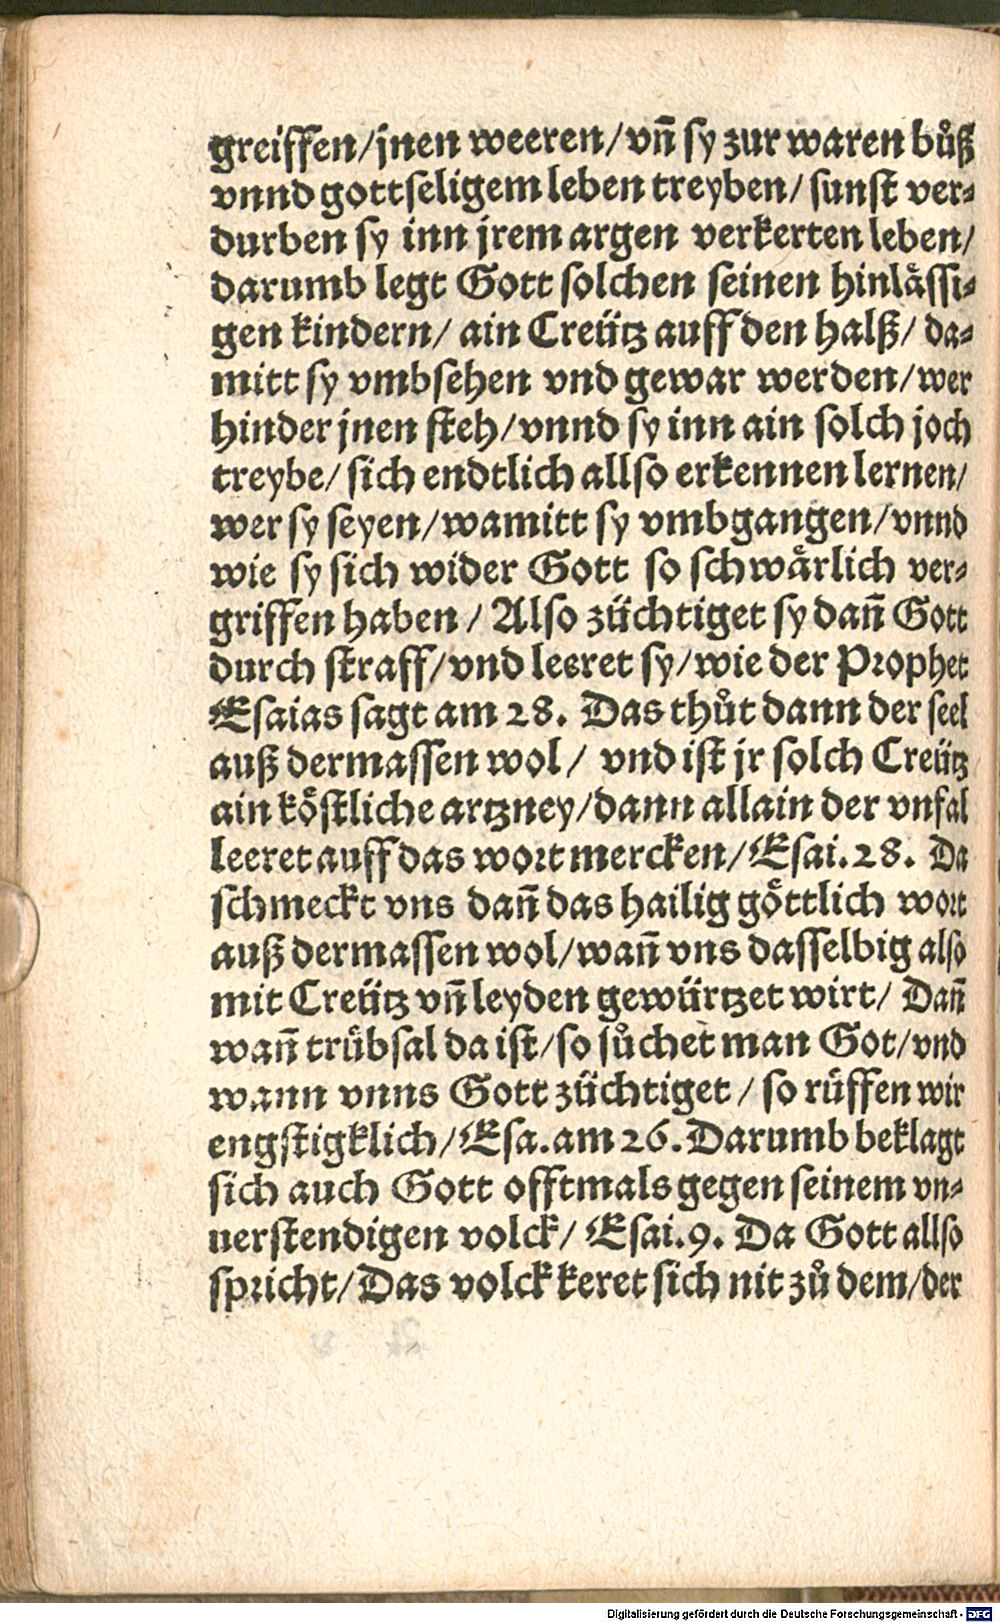 greiffen/jnen weeren/vñ sy zur waren bůß
vnnd gottseligem leben treyben/ sunst ver⸗
durben sy inn jrem argen verkerten leben/
darumb legt Gott solchen seinen hinlåssi⸗
gen kindern/ ain Creütz auff den halß/ da⸗
mitt sy vmbsehen vnd gewar werden/wer
hinder jnen steh/vnnd sy inn ain solch joch
treybe/ sich endtlich allso erkennen lernen/
wer sy seyen/wamitt sy vmbgangen/vnnd
wie sy sich wider Gott so schwårlich ver⸗
griffen haben / Also züchtiget sy dañ Gott
durch straff/vnd leeret sy/wie der Prophet
Esaias sagt am 28. Das thůt dann der seel
auß dermassen wol/ vnd ist jr solch Creütz
ain kôstliche artzney/dann allain der vnfal
leeret auff das wort mercken/Esai.28. Da
schmeckt vns dañ das hailig gôttlich wort
auß dermassen wol/wañ vns dasselbig also
mit Creütz vñ leyden gewürtzet wirt/ Dañ
wañ trübsal da ist/so sůchet man Got/vnd
wann vnns Gott züchtiget / so rüffen wir
engstigklich/Esa.am 26.Darumb beklagt
sich auch Gott offtmals gegen seinem vn⸗
uerstendigen volck/ Esai.9. Da Gott allso
spricht/Das volck keret sich nit zů dem/der
Digitalisierung gefördert durch die Deutsche Forschungsgemeinschaft - DFG